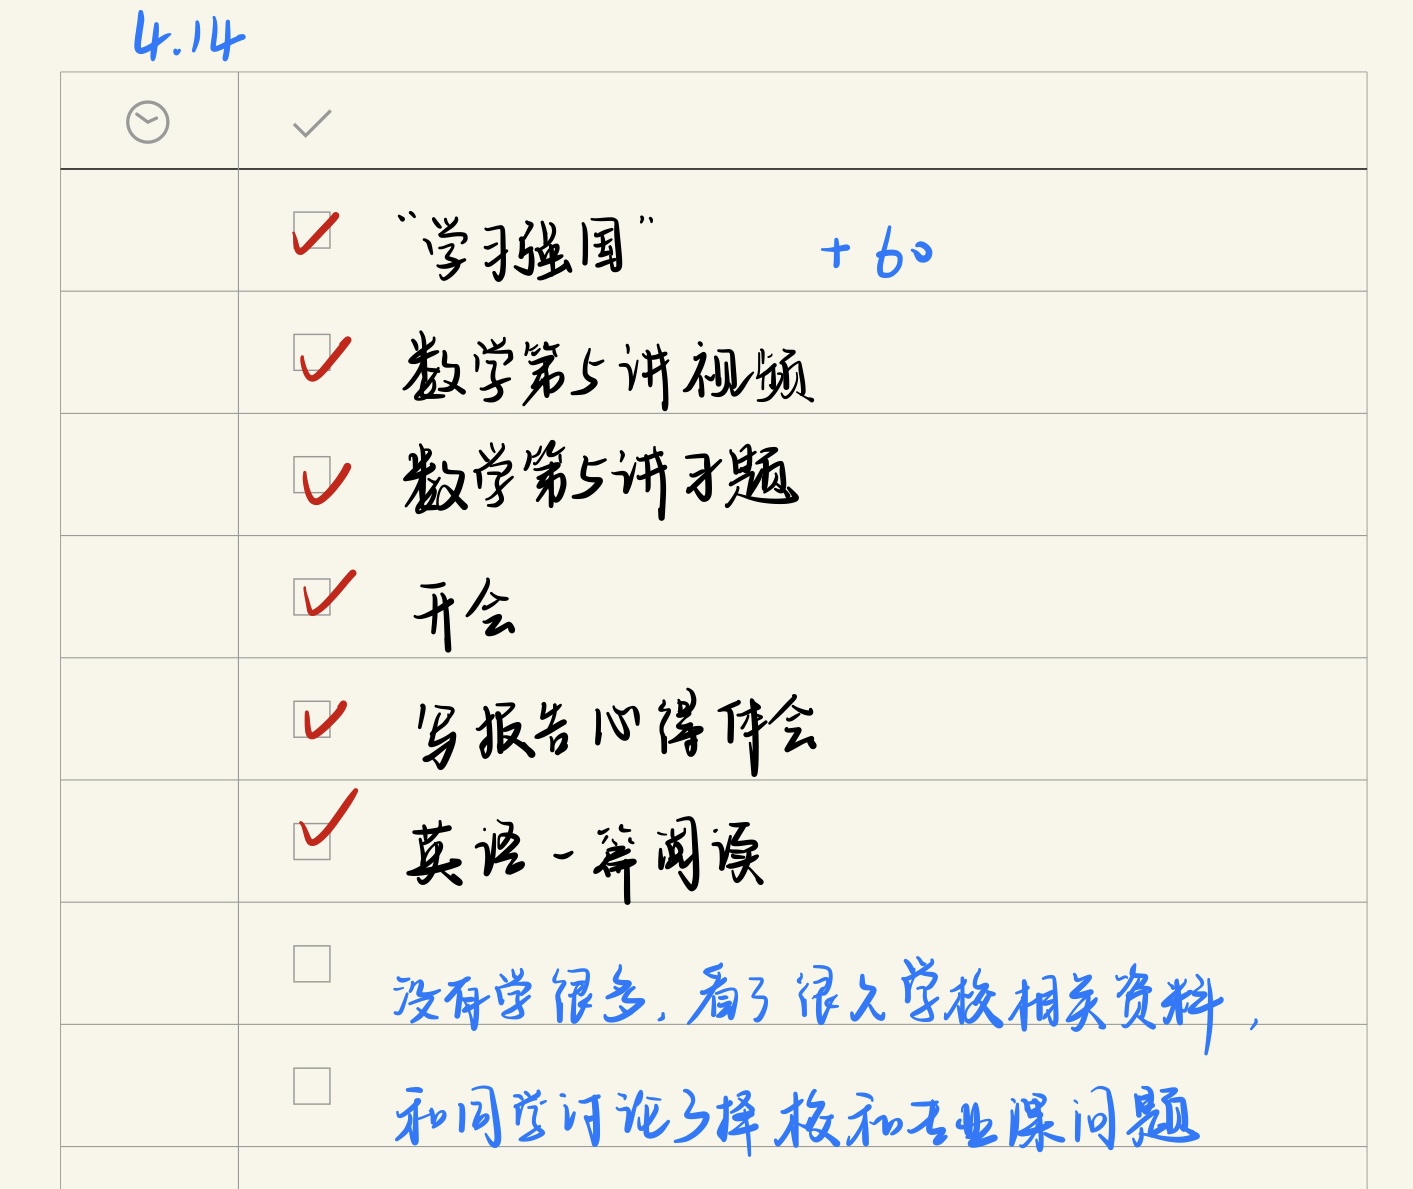 4.14
“学习强国” +60
数学第5讲视频
数学第5讲习题
开会
写报告心得体会
英语一篇阅读
没有学很多，看了很久学校相关资料，
和同学讨论了择校和专业课问题